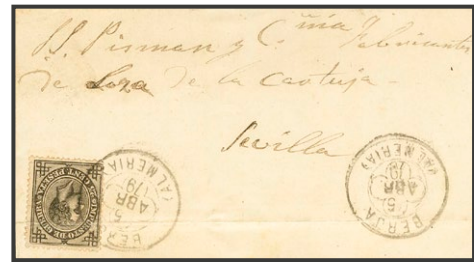 SS. Pisman y C.ñia Fabricantes
de Loza de la Cartuja
Sevilla
BERJA
5
ABR
79
(ALMERIA)
BERJA
5
ABR
79
(ALMERIA)